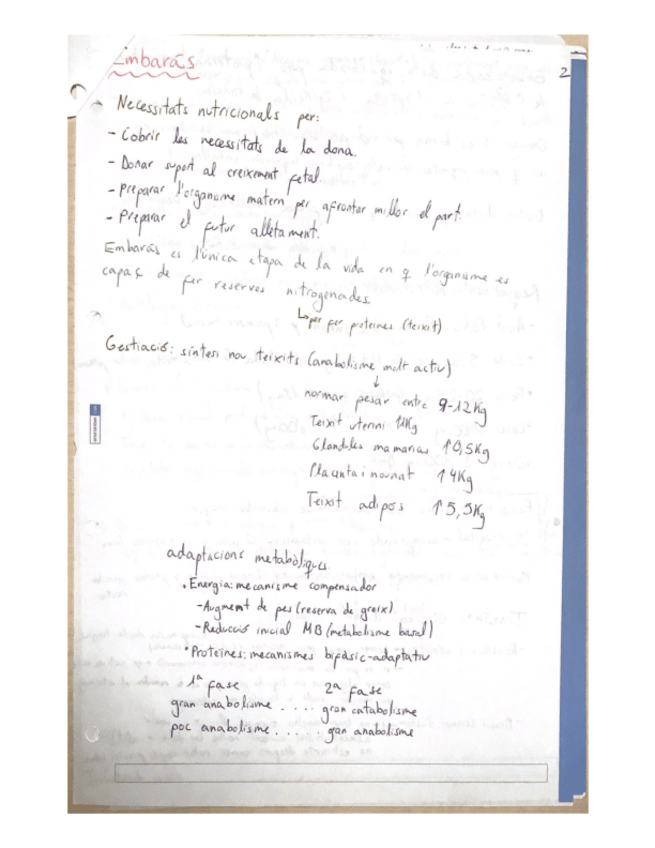 Embaràs
2
Necessitats nutricionals per:
- Cobrir les necessitats de la dona.
- Donar suport al creixment fetal.
- Preparar l'organisme matern per afrontar millor el part.
- Preparar el futur alletament.
Embaràs es l'única etapa de la vida en q l'organisme es
capaç de fer reserves nitrogenades.
↳ per fer proteines (teixit)
Gestació: síntesi nou teixits (anabolisme molt actiu)
↓
normar pesar entre 9-12Kg
Teixit uterini 1Kg
Glandules mamarias ↑0,5Kg
Placenta i nounat ↑4Kg
Teixit adipós ↑5,5Kg
adaptacions metabòliques.
• Energia: mecanisme compensador
- Augment de pes (reserva de greix)
- Reducció inicial MB (metabolisme basal)
• Proteïnes: mecanismes bifàsic-adaptatiu
1ª fase 2ª fase
gran anabolisme ..... gran catabolisme
poc anabolisme ..... gan anabolisme